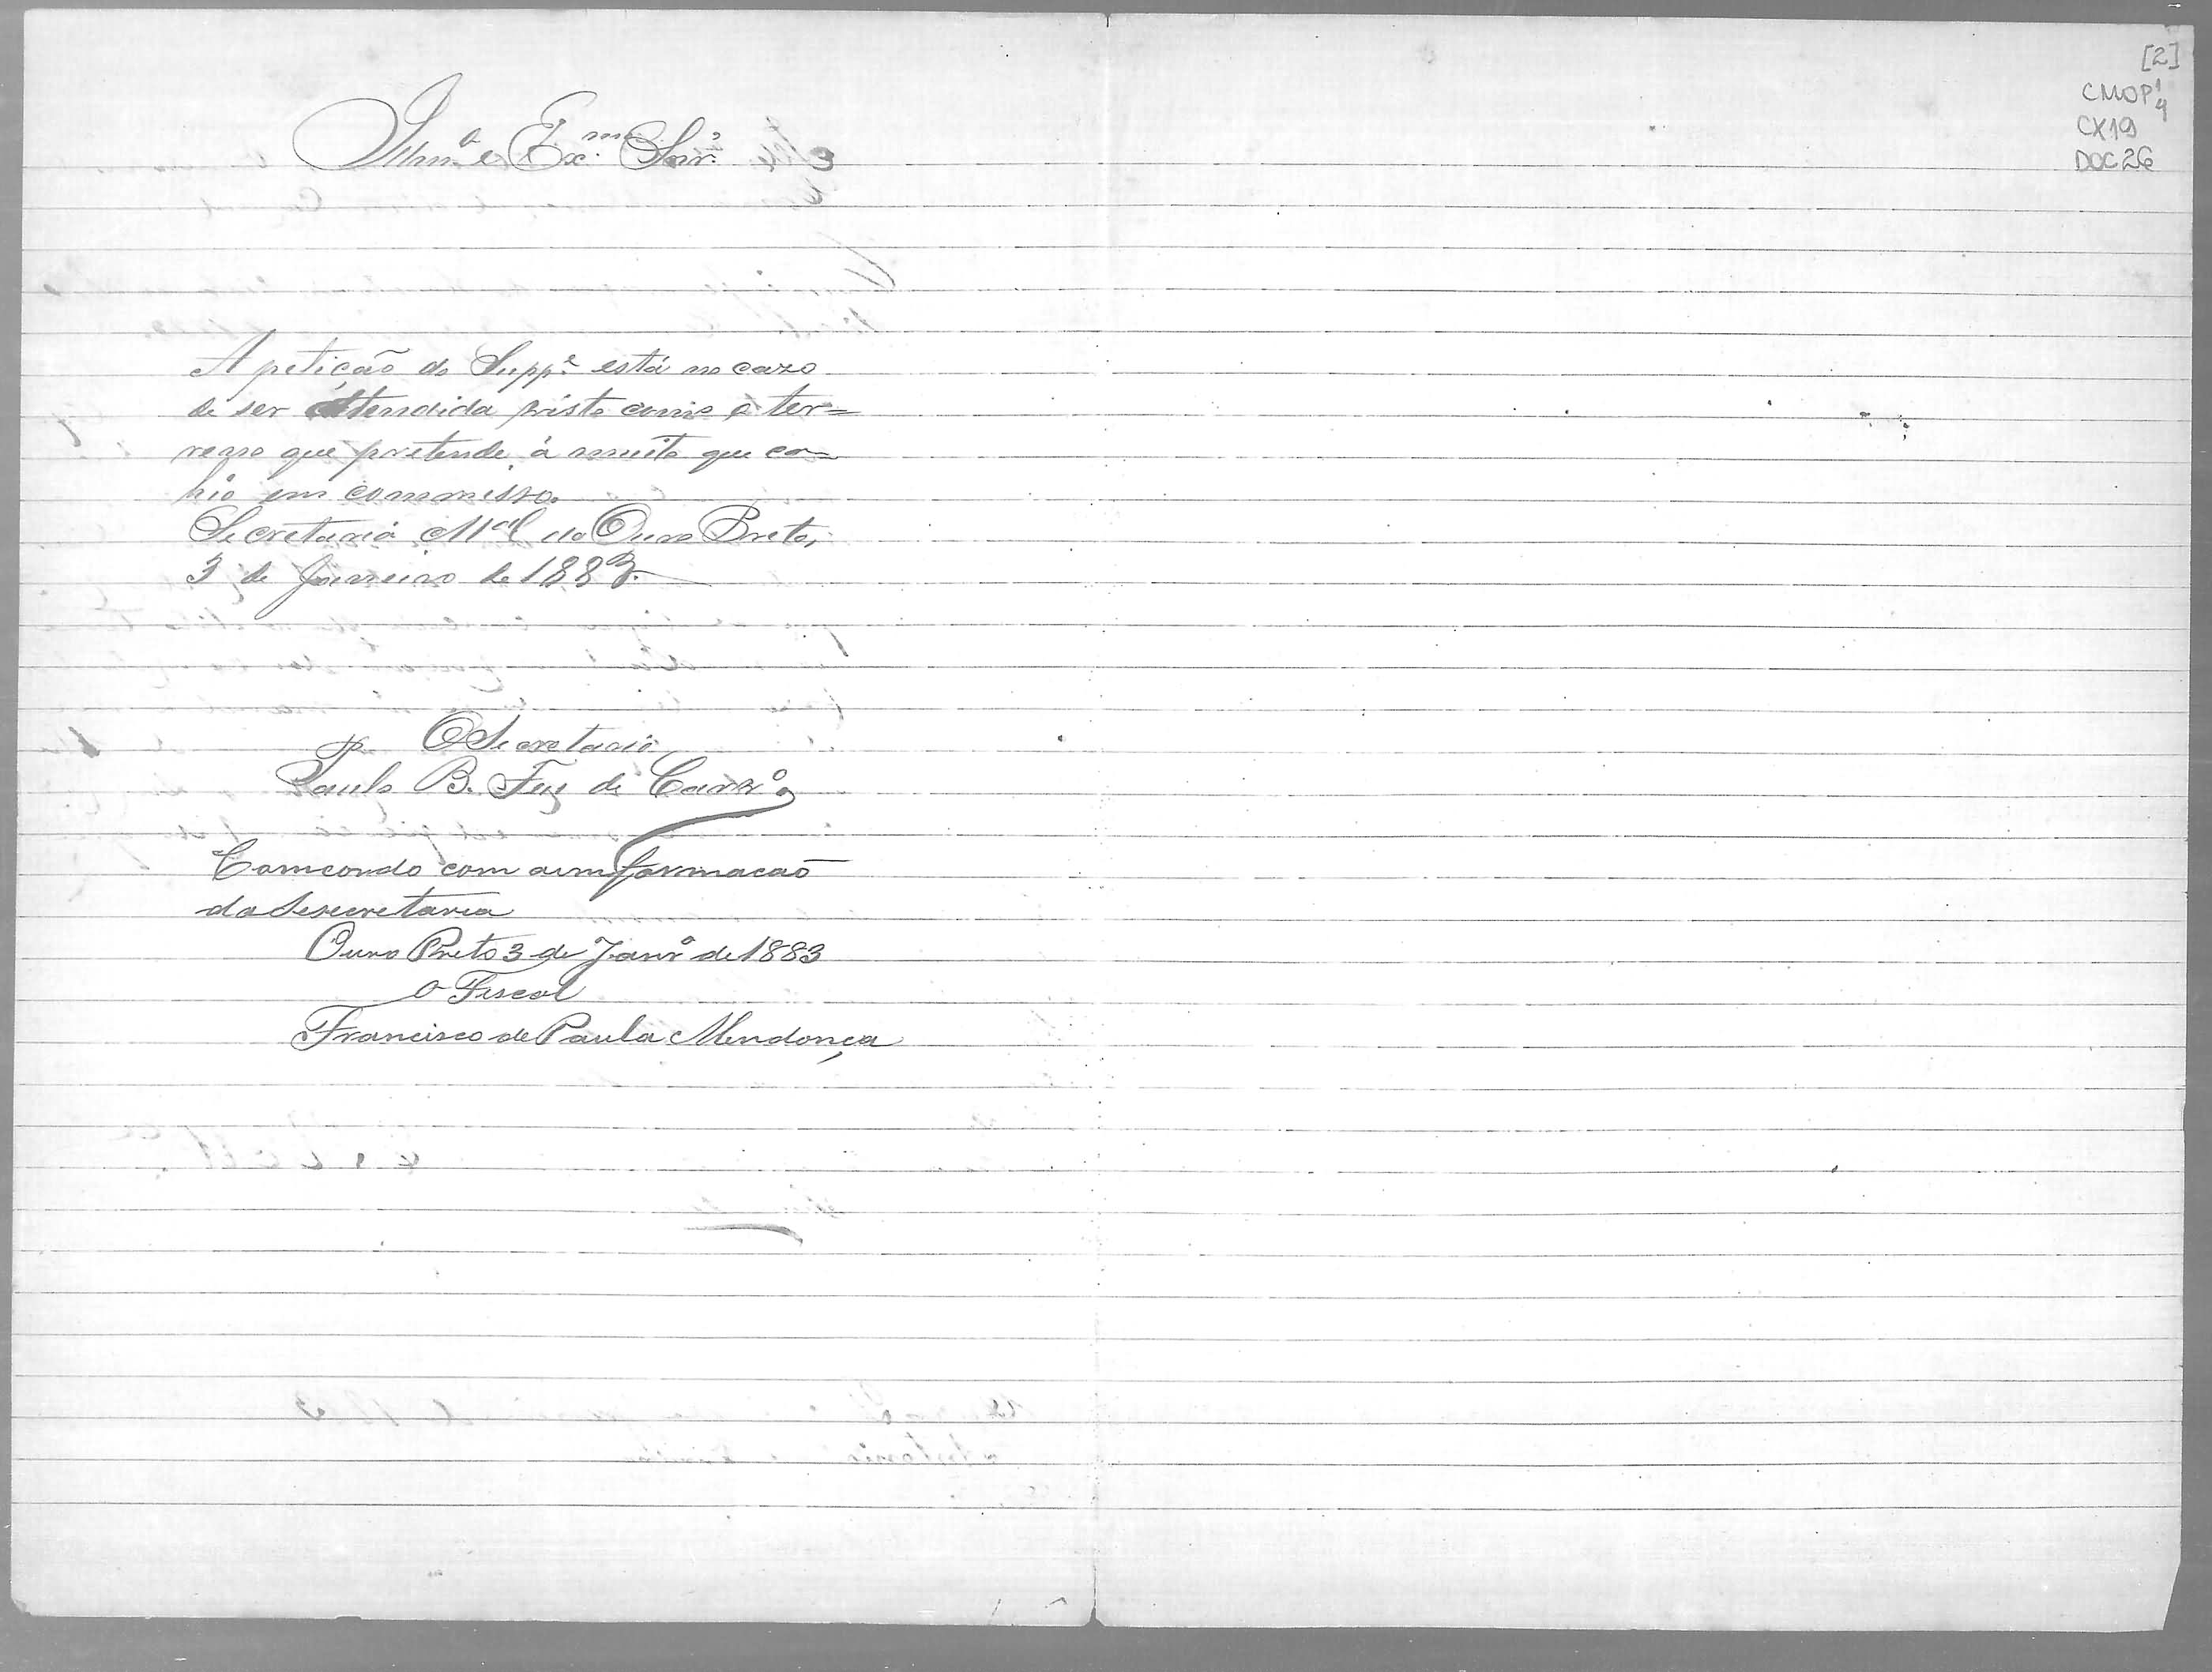 Illm.º e Ex.mo Snr.
A petição do Supp.e está no cazo
de ser attendida visto como o ter=
reno que pretende á muito que ca-
hio em commisso.
Secretaria M.al do Ouro Preto,
3 de Janeiro de 1883.
O Secretario
Paulo B. Fuz de Carv.º
Comcordo com aimformacaõ
da Sesecretaria
Ouro Preto 3 de Janrº de 1883
O Fiscal
Francisco de Paula Mendonça
[2]
CMOP 1/4
CX19
DOC 26